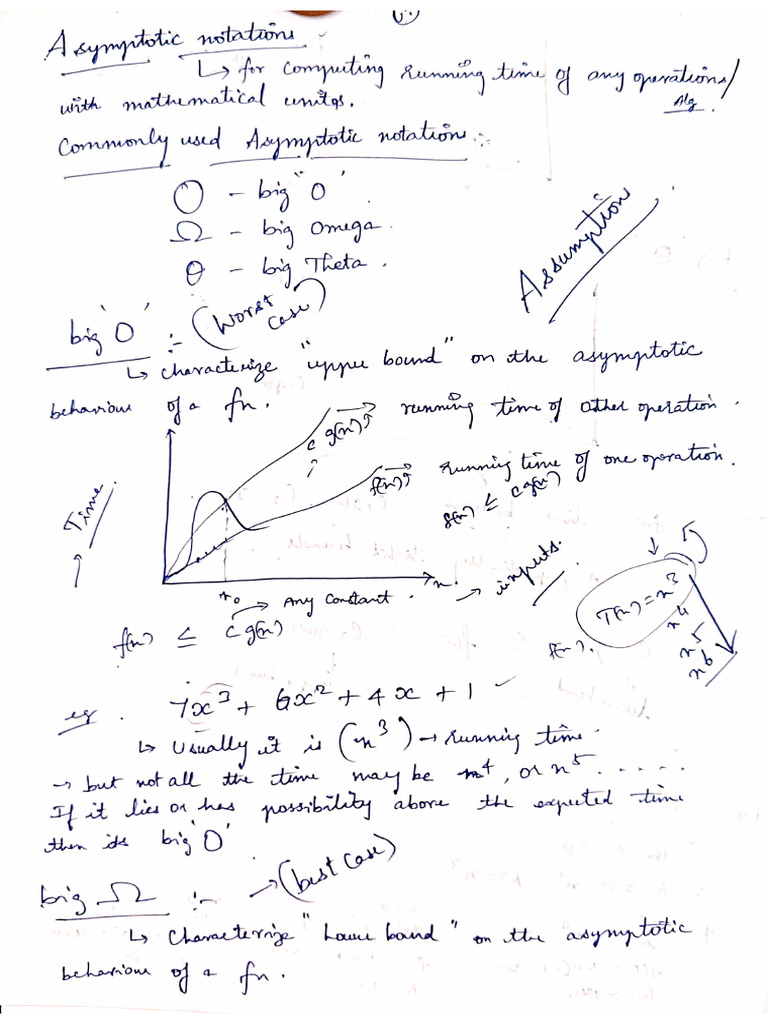 Asymptotic notations
↳ for computing running time of any operations/
Alg.
with mathematical unitqs.
Commonly used Asymptotic notation :-
O - big "O"
Ω - big Omega.
θ - big Theta.
Assumption
big 'O' :- (Worst case)
↳ characterize "upper bound" on the asymptotic
behaviour of a fn.
c g(n) → running time of other operation.
f(n) → running time of one operation.
f(n) ≤ c g(n)
↑ Time
n → inputs.
n₀ → Any Constant.
f(n) ≤ c g(n)
T(n) = n³
n⁴
n⁵
n⁶
f(n).
eg. 7x³ + 6x² + 4x + 1
↳ Usually it is (n³) → running time.
→ but not all the time may be n⁴, or n⁵.....
If it lies or has possibility above the expected time
then its big 'O'
big Ω :- → (best case)
↳ Characterize "Lower band" on the asymptotic
behaviour of a fn.